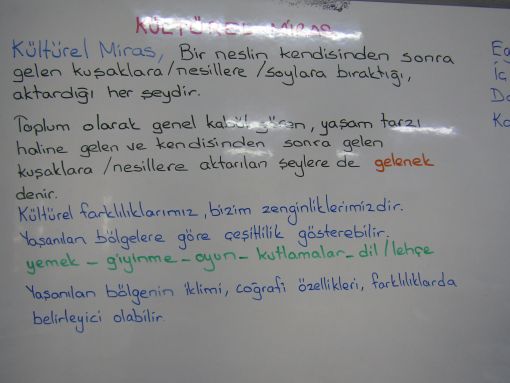 KÜLTÜREL MİRAS
Kültürel Miras, Bir neslin kendisinden sonra
gelen kuşaklara/nesillere/soylara bıraktığı,
aktardığı her şeydir.
Toplum olarak genel kabul gören, yaşam tarzı
haline gelen ve kendisinden sonra gelen
kuşaklara/nesillere aktarılan şeylere de gelenek
denir.
Kültürel farklılıklarımız, bizim zenginliklerimizdir.
Yaşanılan bölgelere göre çeşitlilik gösterebilir.
yemek - giyinme - oyun - kutlamalar - dil/lehçe
Yaşanılan bölgenin iklimi, coğrafi özellikleri, farklılıklarda
belirleyici olabilir.
İç